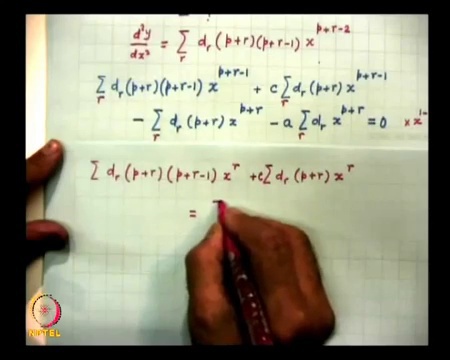 d²y/dx² = Σ_r d_r (p+r)(p+r-1) x^{p+r-2}
Σ_r d_r (p+r)(p+r-1) x^{p+r-1} + c Σ_r d_r (p+r) x^{p+r-1}
- Σ_r d_r (p+r) x^{p+r} - a Σ_r d_r x^{p+r} = 0 × x^{1-
Σ d_r (p+r) (p+r-1) x^r + c Σ d_r (p+r) x^r
=
NPTEL